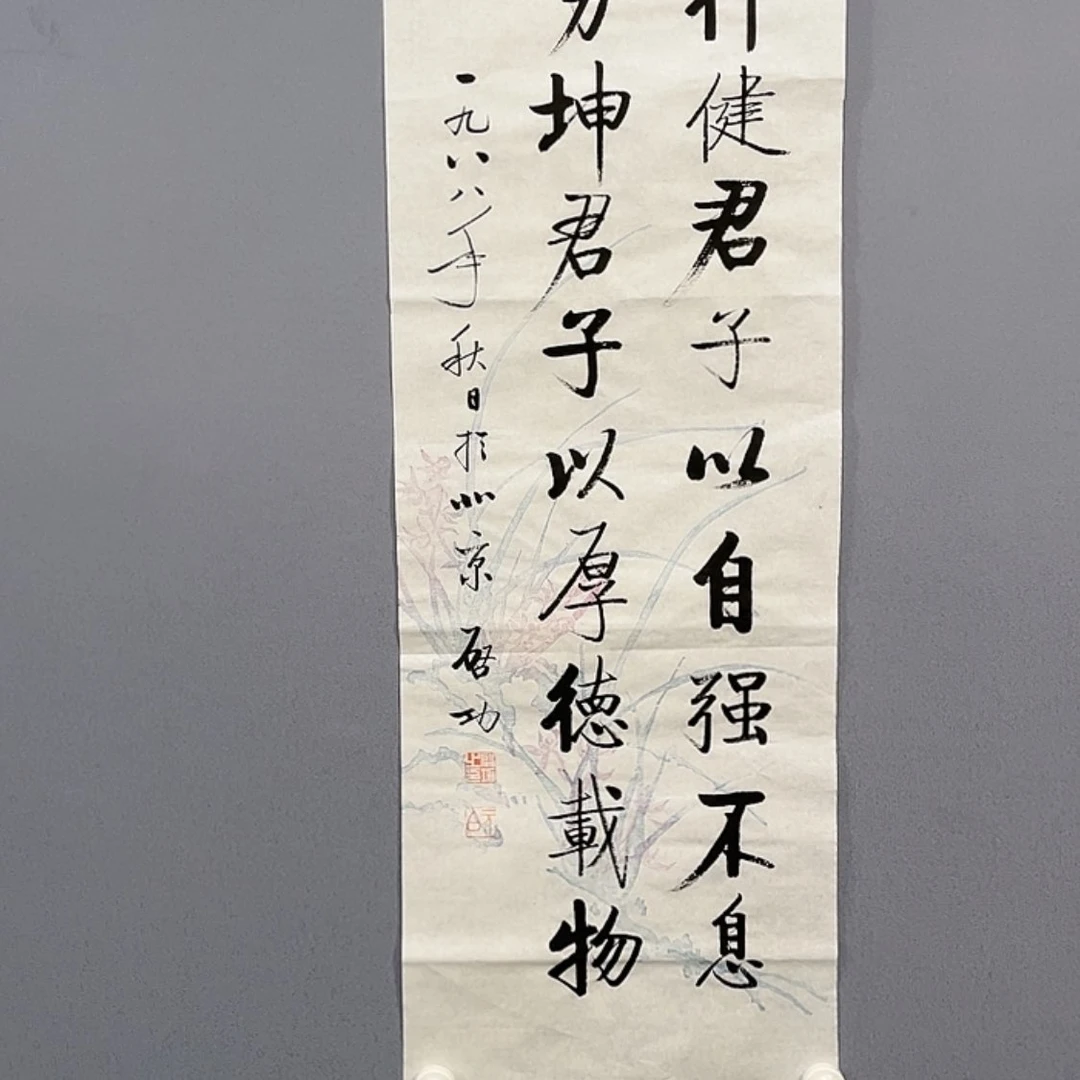 健君子以自强不息
坤君子以厚德載物
一九八八年秋日於北京 啓功